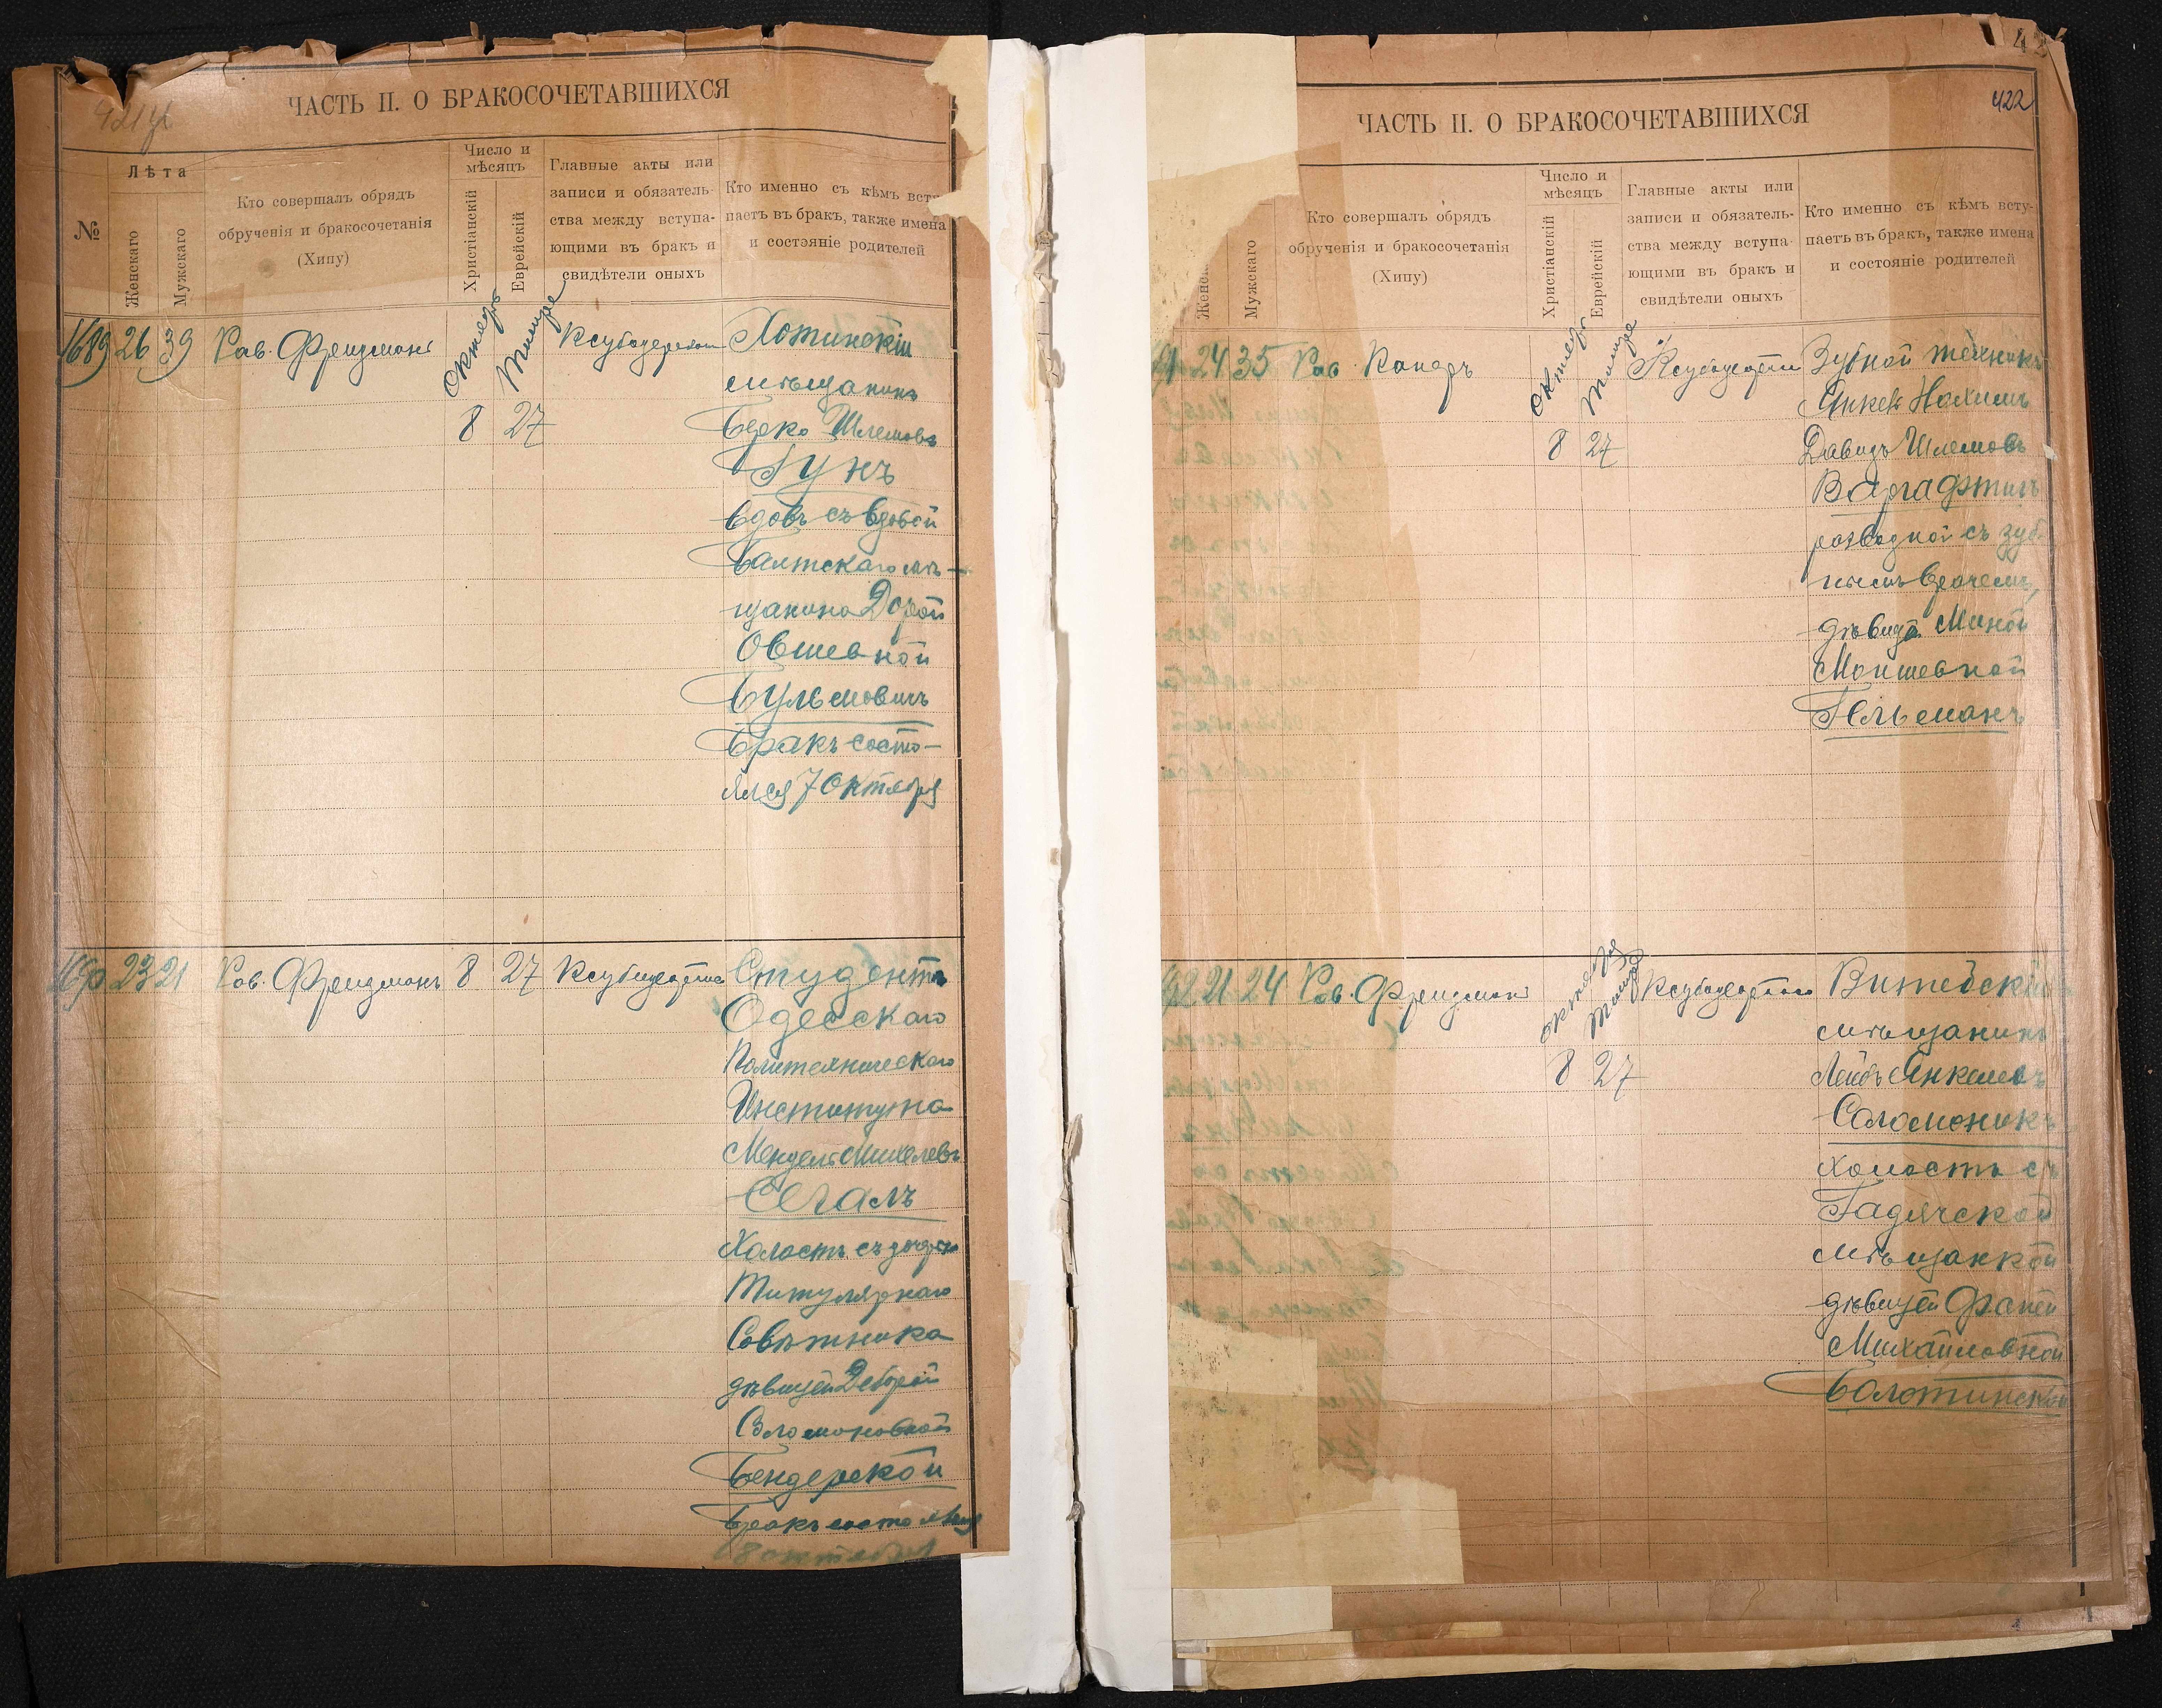 421 об
ЧАСТЬ II. О БРАКОСОЧЕТАВШИХСЯ
№
Лѣта
Женскаго
Мужскаго
Кто совершалъ обрядъ
обрученія и бракосочетанія
(Хипу)
Число и
мѣсяцъ
Христіанскій
Еврейскій
Главные акты или
записи и обязатель-
ства между вступа-
ющими въ бракъ и
свидѣтели оныхъ
Кто именно съ кѣмъ всту
паетъ въ бракъ, также имена
и состояніе родителей
1689 26 39 Рав. Фрейдманъ
Октябрь
Тишре
8 27
Хотинскій
мѣщанинъ
Берко Шлемовъ
Гукъ
вдовъ съ вдовой
Балтскаго мѣ-
щанина Дорой
Овшевной
Бульмовичъ
Бракъ состо-
ялся 7 Октября
1690 23 21 Рав. Фрейдманъ 8 27
Студентъ
Одесскаго
Политехническаго
Института
Мендель Михелевъ
Сегалъ
Холостъ съ дочерью
Титулярнаго
Совѣтника
дѣвицей Деборой
Соломоновной
Бендерской
Бракъ состоялся
8 октября
422
ЧАСТЬ II. О БРАКОСОЧЕТАВШИХСЯ
Женск
Мужскаго
Кто совершалъ обрядъ
обрученія и бракосочетанія
(Хипу)
Число и
мѣсяцъ
Христіанскій
Еврейскій
Главные акты или
записи и обязатель-
ства между вступа-
ющими въ бракъ и
свидѣтели оныхъ
Кто именно съ кѣмъ всту-
паетъ въ бракъ, также имена
и состояніе родителей
91 24 35 Рав.
Октябрь
Тишре
8 27
Зубной техникъ
Янкель Нахимъ
Давидъ Шлемовъ
Варгафтигъ
разводной съ зуб
нымъ врачемъ,
дѣвицей Миной
Мошевной
Гельманъ
92 21 24 Рав. Фрейдманъ
октября
Тишре
8 27
Витебскій
мѣщанинъ
Лейбъ Янкелевъ
Соломоникъ
холостъ съ
Гадячской
мѣщанкой
дѣвицей Фаней
Михайловной
Болотинской